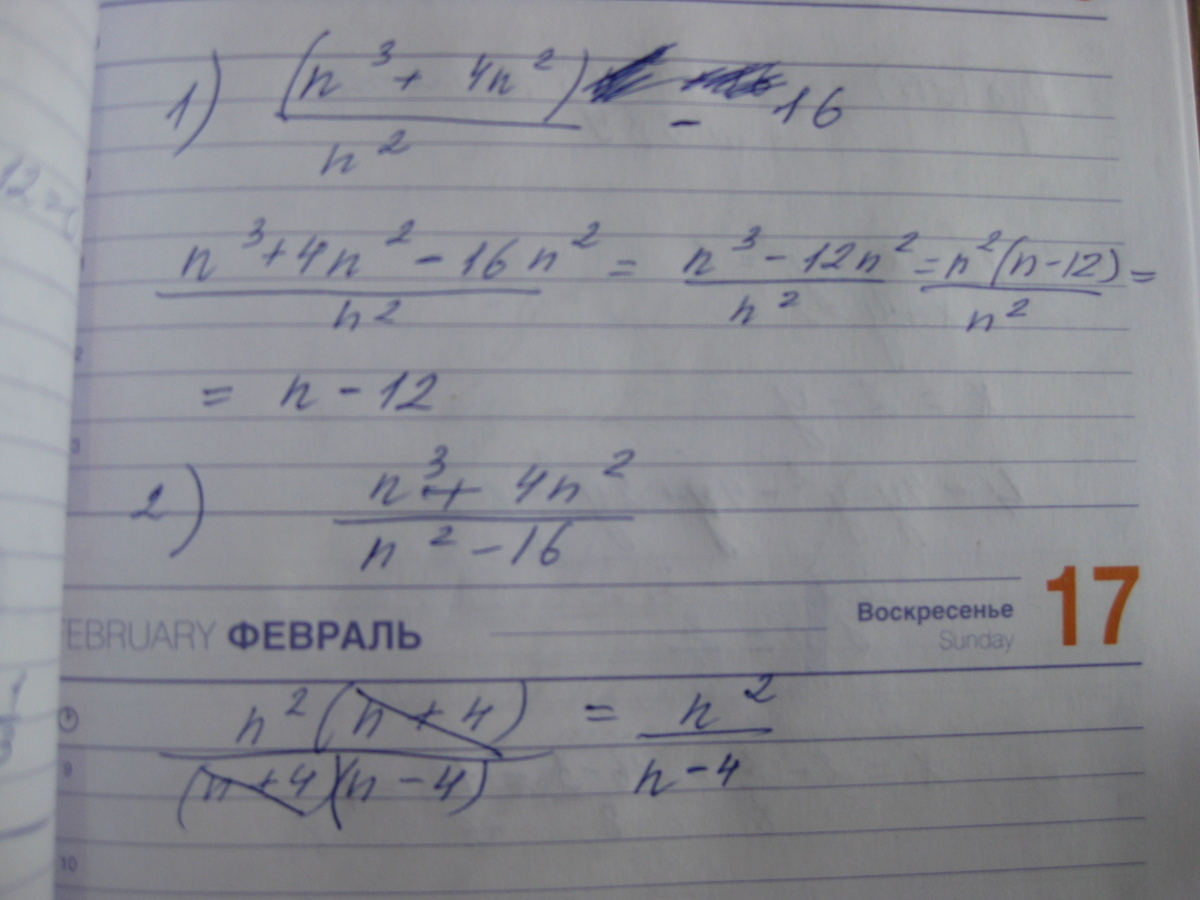 1) (n³ + 4n²) / n² - 16
(n³ + 4n² - 16n²) / n² = (n³ - 12n²) / n² = n²(n-12) / n² =
= n - 12
2) (n³ + 4n²) / (n² - 16)
EBRUARY ФЕВРАЛЬ Воскресенье Sunday 17
n²(n + 4) / (n + 4)(n - 4) = n² / (n - 4)
9
10